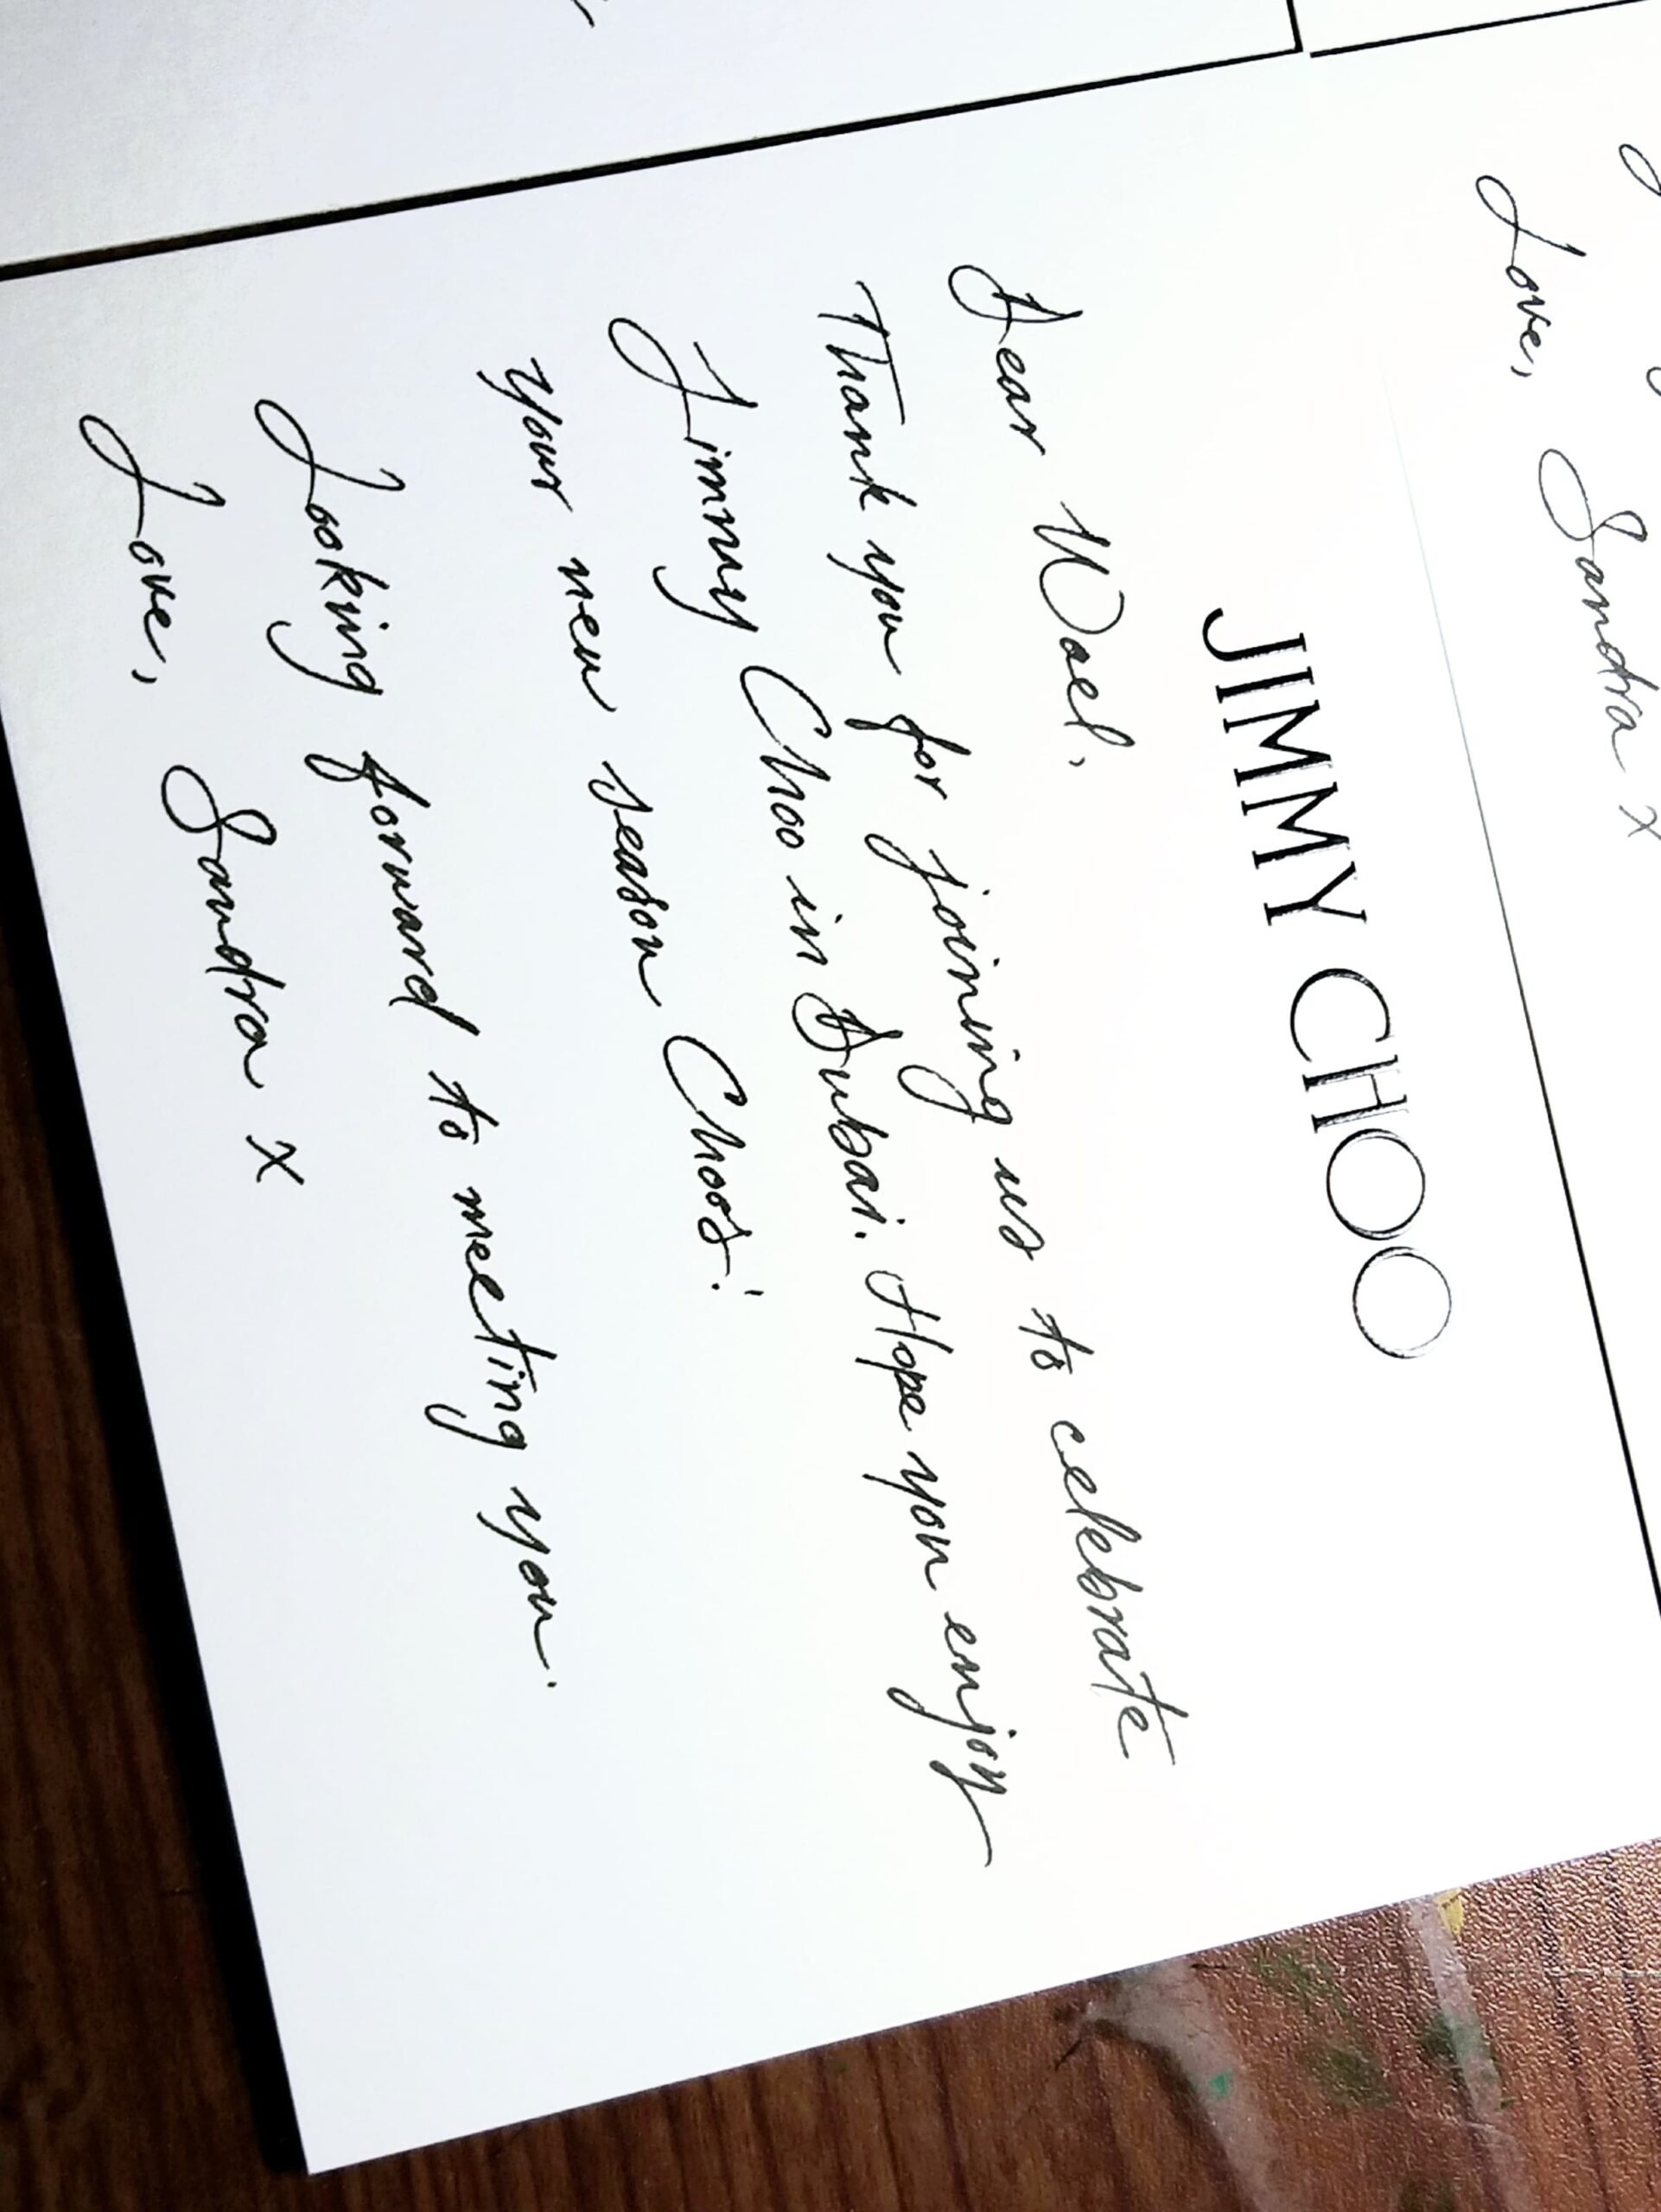 Love, Sandra x
JIMMY CHOO
Dear Wael,
Thank you for joining us to celebrate
Jimmy Choo in Dubai. Hope you enjoy
your new season Choos!
Looking forward to meeting you.
Love, Sandra x